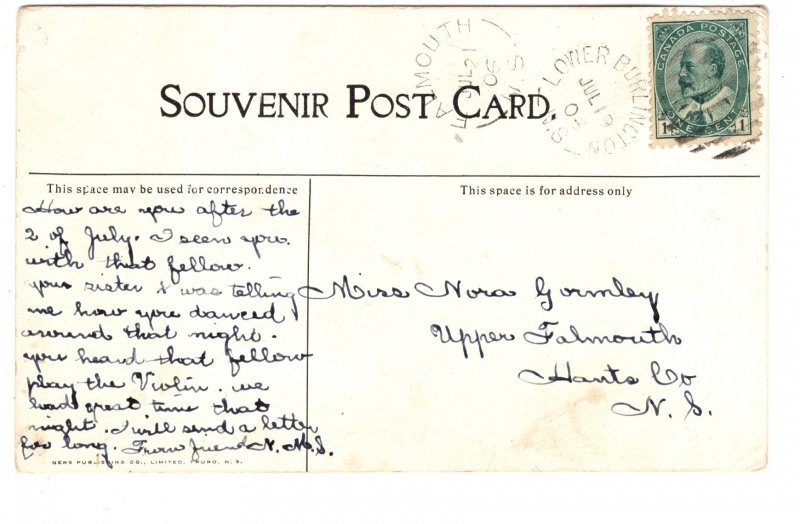 FALMOUTH
JUL 21
08
N.S.
LOWER BURLINGTON
JUL 19
N.S.
CANADA POSTAGE
1 ONE CENT 1
SOUVENIR POST CARD.
This space may be used for correspondence
This space is for address only
How are you after the
2 of July. I seen you
with that fellow.
your sister & was telling
me how you danced
around that night.
you heard that fellow
play the Violin. we
had great time that
night. I will send a letter
for long. From friend N. M. S.
Miss Nora Gormley
Upper Falmouth
Hants Co
N. S.
NEWS PUBLISHING CO., LIMITED, TRURO, N. S.